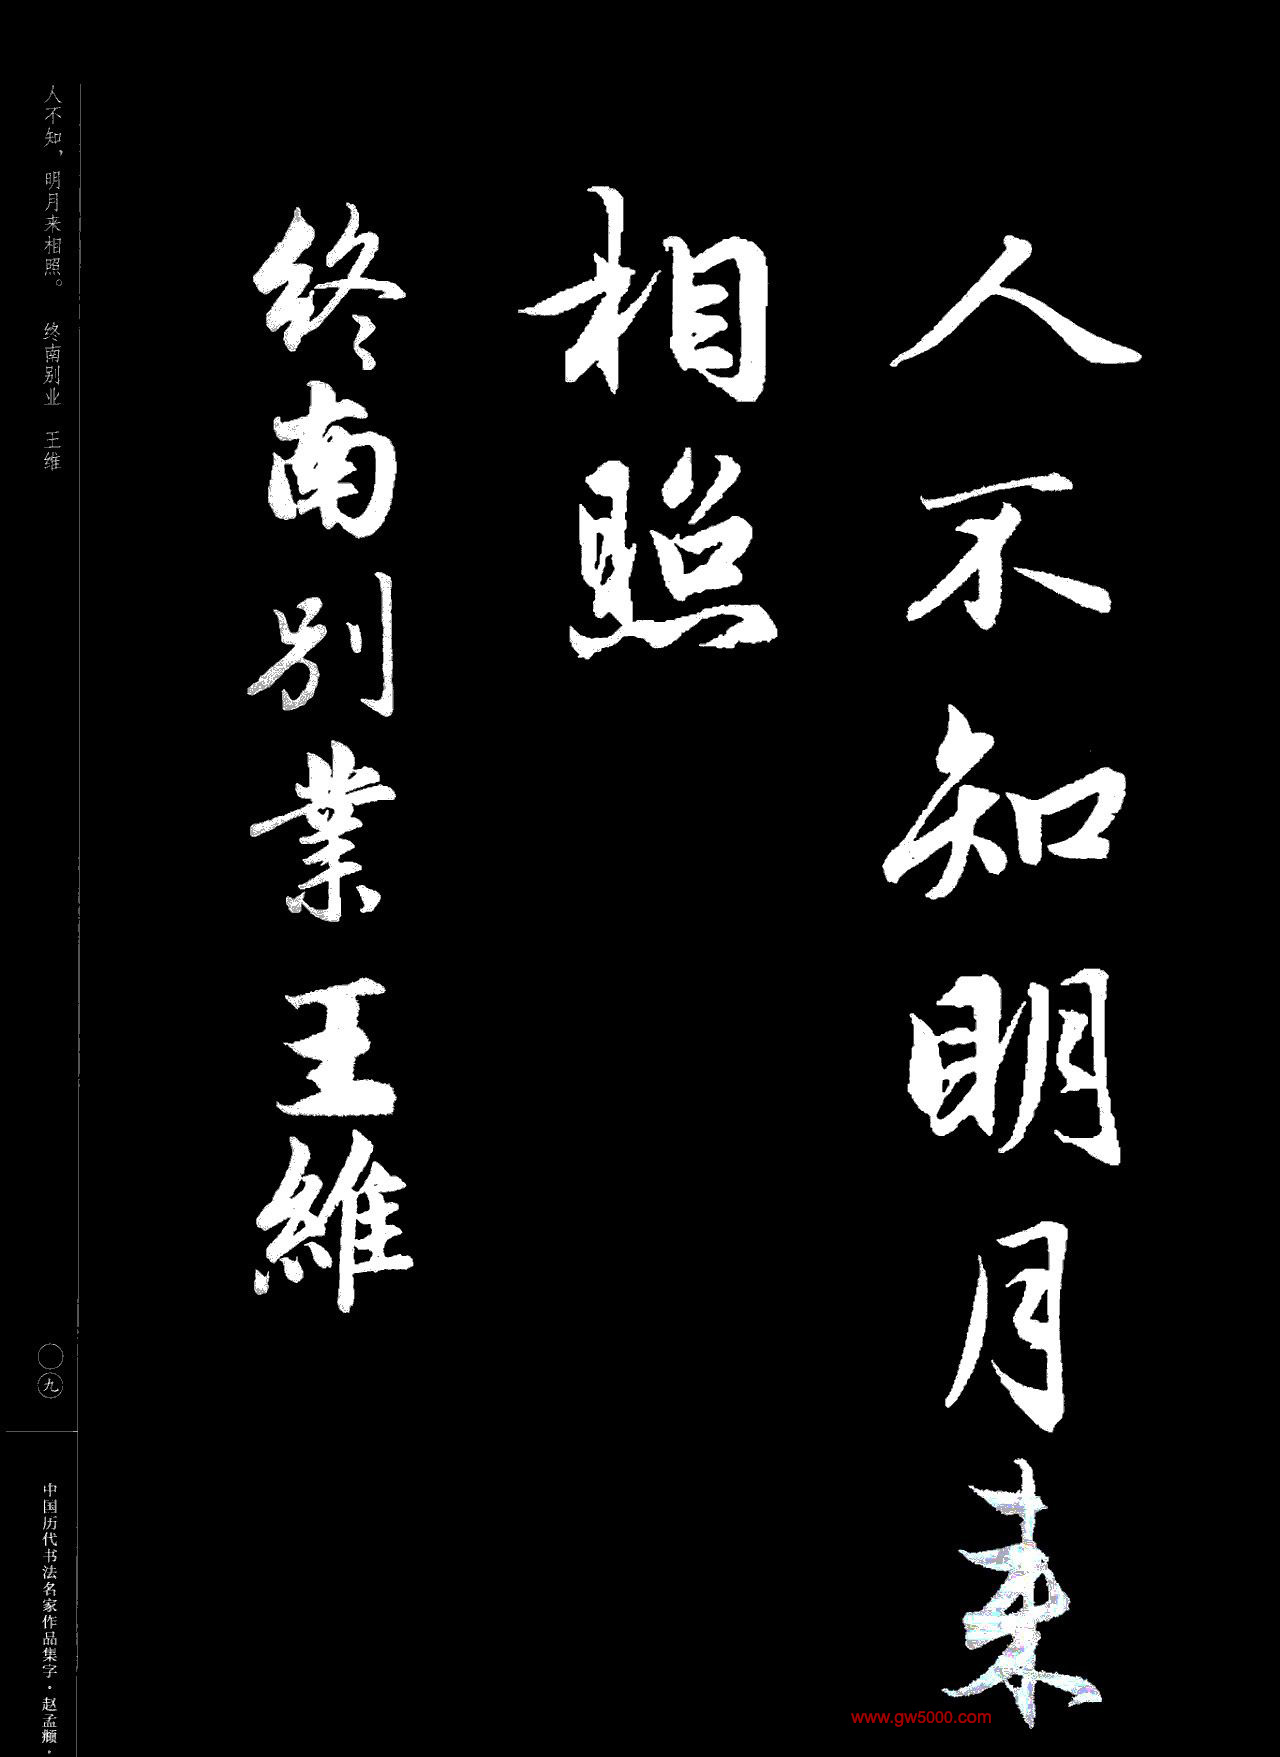 人不知明月来
相照
终南别業王維
人不知，明月来相照。 终南别业 王维
〇九
中国历代书法名家作品集字·赵孟頫·
www.gw5000.com